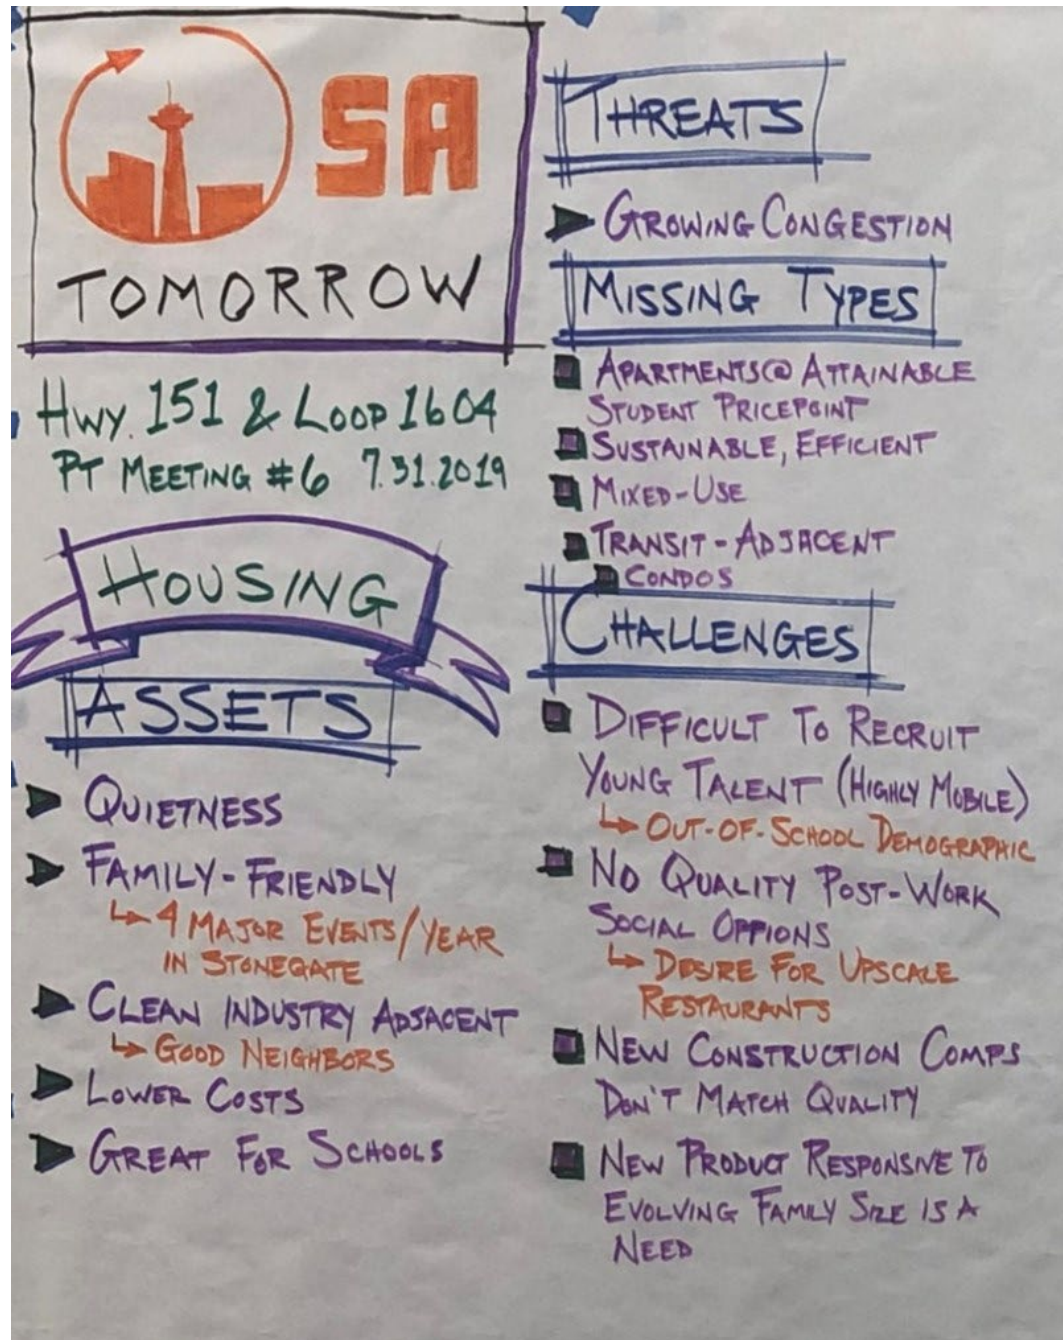 SA
TOMORROW
HWY. 151 & LOOP 1604
PT MEETING #6 7.31.2019
HOUSING
ASSETS
QUIETNESS
FAMILY-FRIENDLY
4 MAJOR EVENTS/YEAR
IN STONEGATE
CLEAN INDUSTRY ADJACENT
GOOD NEIGHBORS
LOWER COSTS
GREAT FOR SCHOOLS
THREATS
GROWING CONGESTION
MISSING TYPES
APARTMENTS@ ATTAINABLE
STUDENT PRICEPOINT
SUSTAINABLE, EFFICIENT
MIXED-USE
TRANSIT-ADJACENT
CONDOS
CHALLENGES
DIFFICULT TO RECRUIT
YOUNG TALENT (HIGHLY MOBILE)
OUT-OF-SCHOOL DEMOGRAPHIC
NO QUALITY POST-WORK
SOCIAL OPPIONS
DESIRE FOR UPSCALE
RESTAURANTS
NEW CONSTRUCTION COMPS
DON'T MATCH QUALITY
NEW PRODUCT RESPONSIVE TO
EVOLVING FAMILY SIZE IS A
NEED